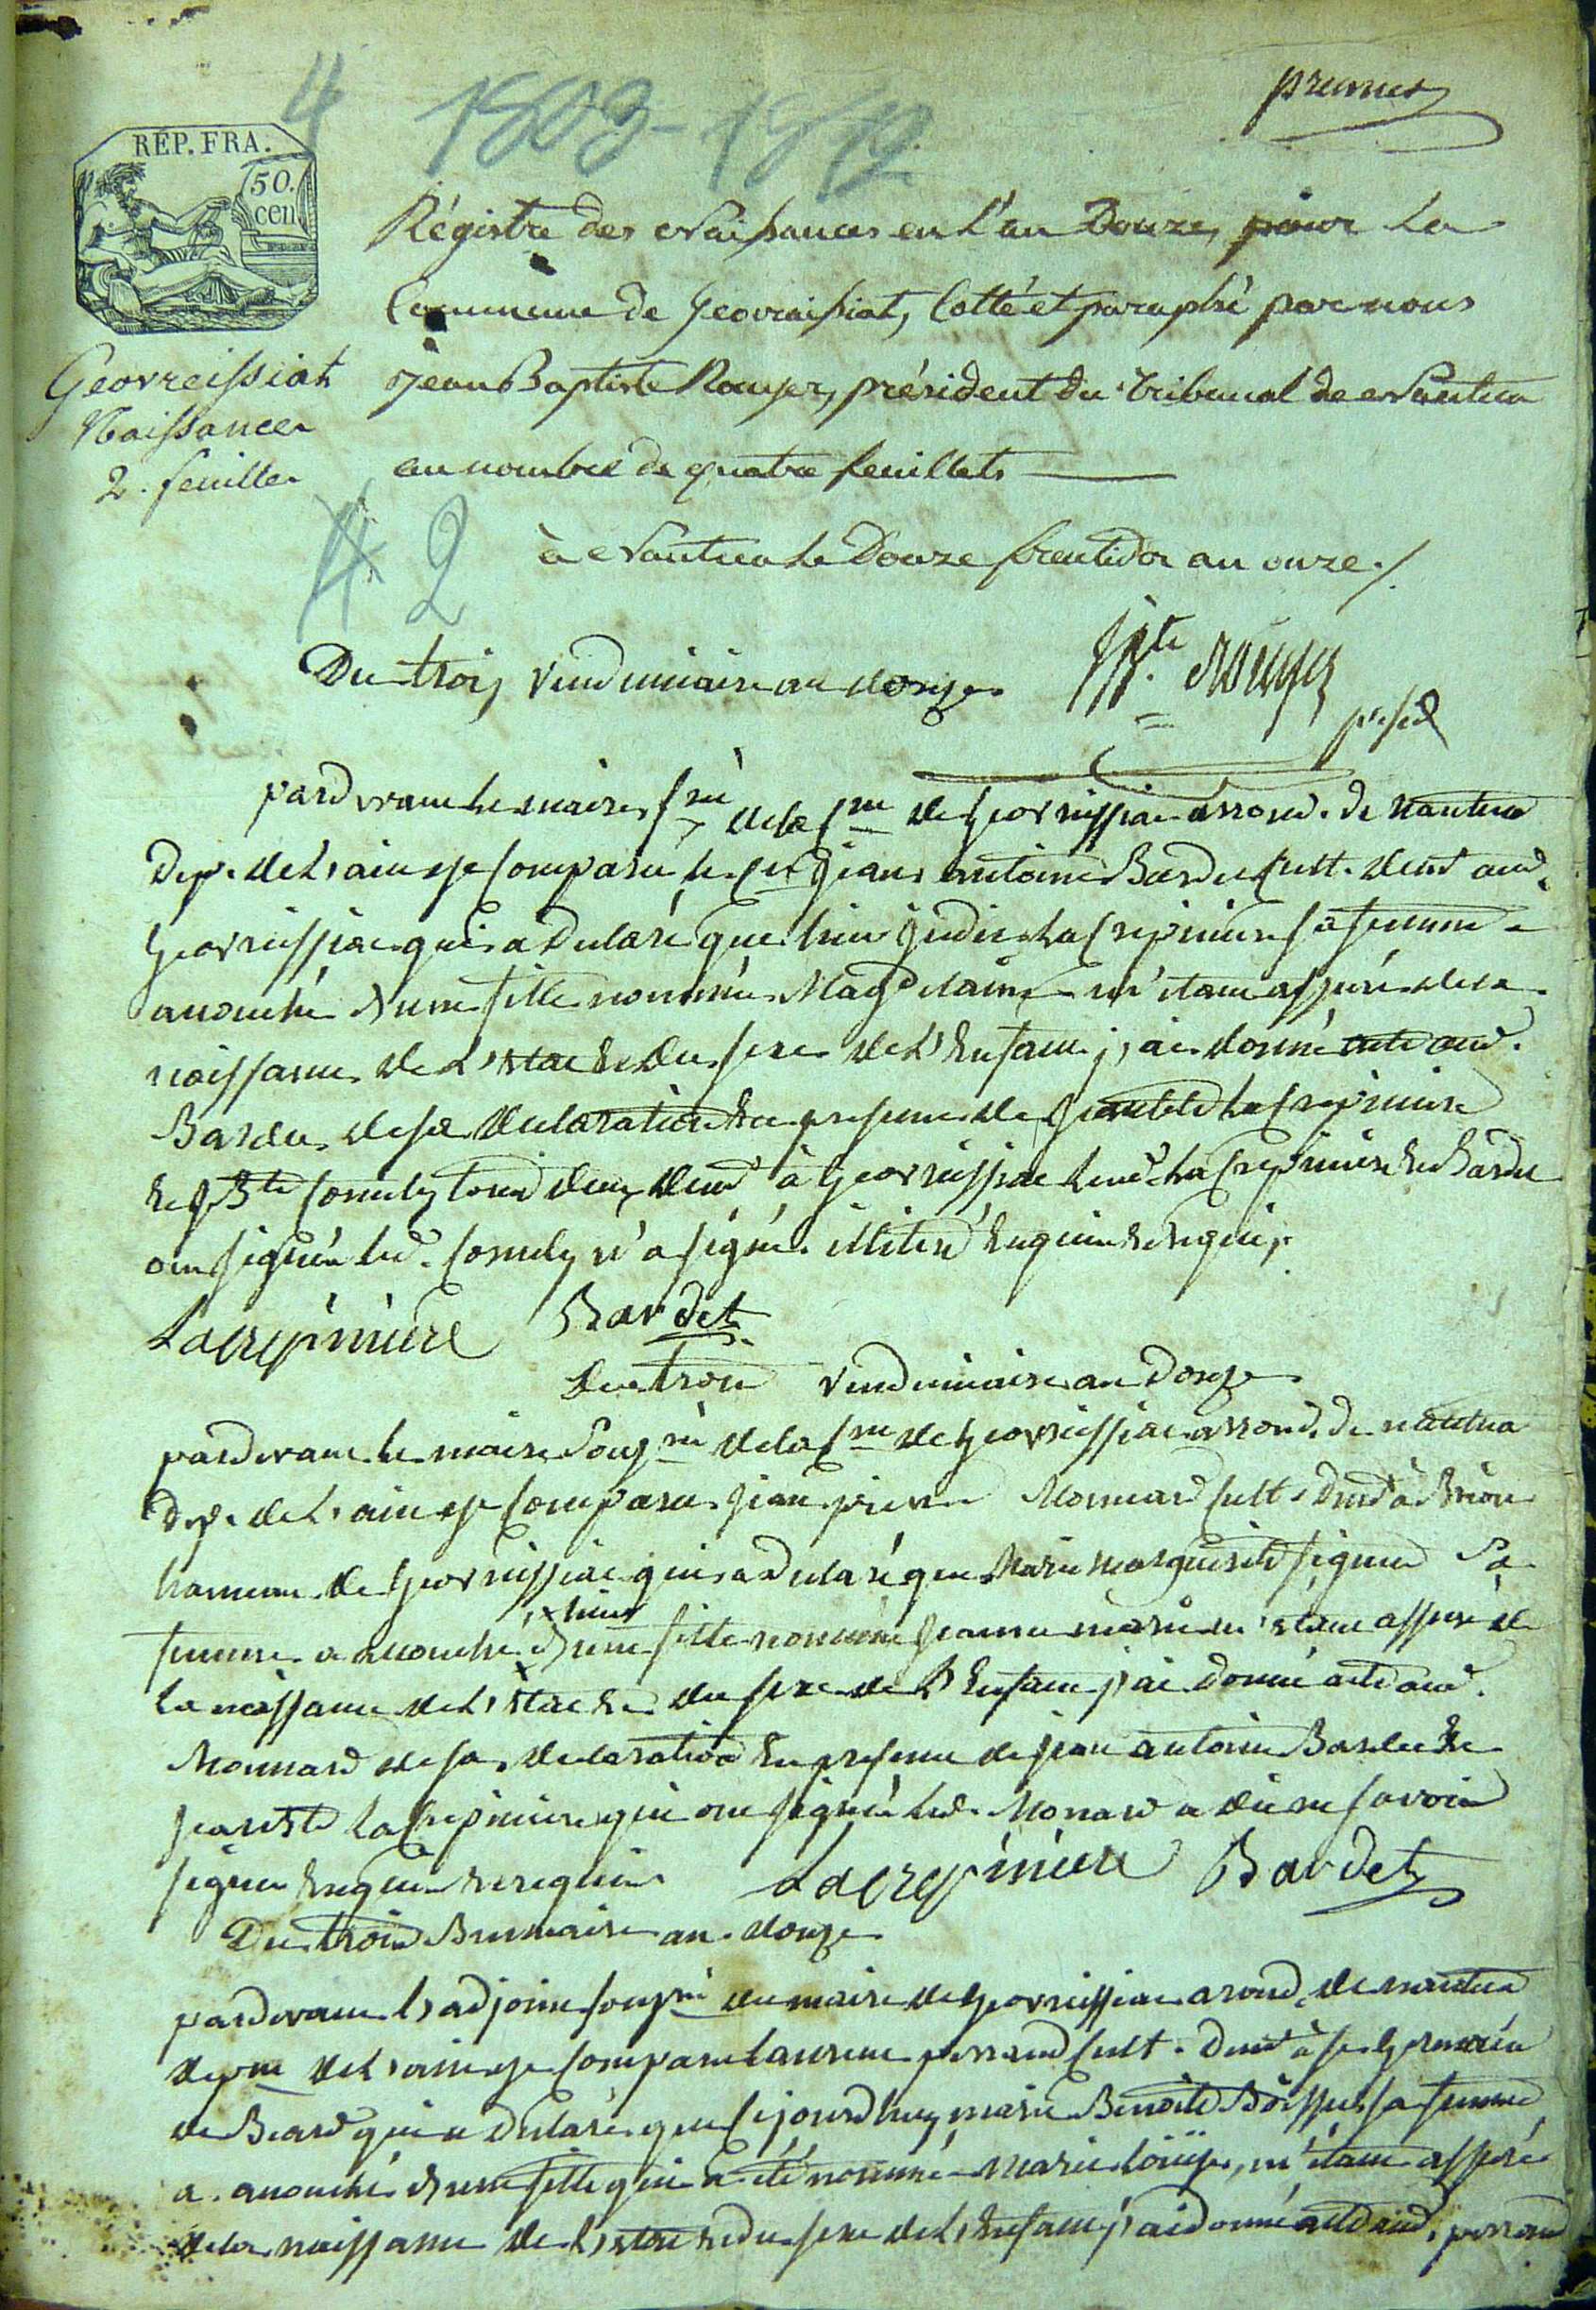 premier
4 1803-1812
RÉP. FRA.
50.
cen
Régistre des Naissances en l'an Douze, pour la
Commune de Geovraissiat, Cotté et paraphé par nous
Jean Baptiste Rouyer, président du tribunal de Nantua
au nombre de quatre feuillets
Geovreissiat
Naissances
2. feuilles
4 2
à Nantua le Douze fructidor an onze ./.
Du trois vendemiaire an douze
JBte Rouyer
presid
pardevant le maire sné de la cne de Geovreissiat arrond. de nantua
Dep. de L'ain est comparu le cen jean antoine Bardet cult. demt aud.
Geovreissiat qui a declaré que hier judie Lacrepiniere sa femme a
accouché d'une fille nommée Magdelaine m'etant assuré de la
naissance de L'etat et du sexe de L'enfant j'ai donné acte aud.
Bardet de sa declaration en presence de jean bte Lacrepiniere
et jBte tous deux demt à Geovreissiat led. Lacrepiniere et Bardet
ont signé led. n'a signé illiteré enquis et requis.
Lacrepiniere Bardet
Du trois vendemiaire an Douze
pardevant le maire sousné de la cne de Geovreissiat arrond. de nantua
Dep. de L'ain est comparu jean pierre Monnard cult. demt à Brion
hameau de Geovreissiat qui a declaré que Marie marguerite sa
x hier
femme a accouché d'une fille nommée jeanne marie m'etant assuré de
la naissance de L'etat et du sexe de L'enfant j'ai donné acte aud.
Monnard de sa declaration en presence de jean antoine Bardet et
jean bte Lacrepiniere qui ont signé led. Monard a dit ne savoir
signer enquis et requis
Lacrepiniere Bardet
Du trois Brumaire an douze
pardevant L'adjoint sousné du maire de Geovreissiat arond. de nantua
depnt de L'ain est comparu laurent perrand cult. demt à st germain
de Beard qui a declaré que cejourd'huy marie Benoite sa femme
a accouché d'une fille qui a été nommé marie louise, m'etant assuré
de la naissance de L'etat et du sexe de L'enfant j'ai donné acte aud. perrand